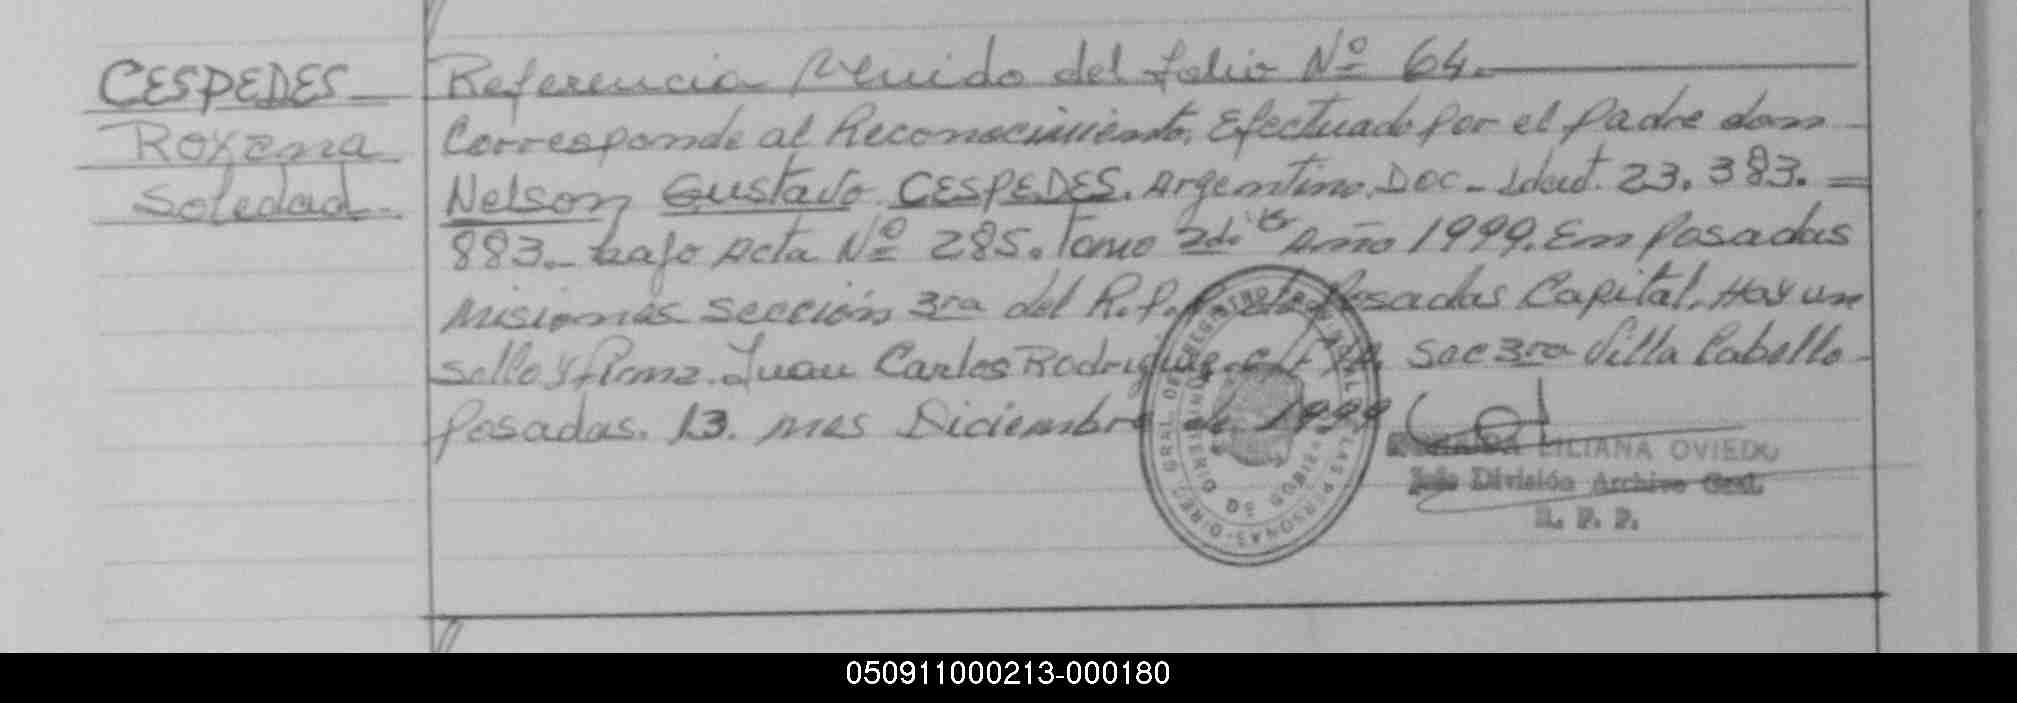 CESPEDES
Roxana
Soledad.
Referencia del folio Nº 64.
Corresponde al Reconocimiento. Efectuado por el padre don
Nelson Gustavo CESPEDES. Argentino. Doc. Idad. 23.383.
883. bajo Acta Nº 285. Tomo 2do bis Año 1999. En Posadas
Misiones sección 3ra del R.P. de Posadas Capital. Hay un
sello y firma. Juan Carlos Rodriguez Sec 3ra Villa Cabello
Posadas. 13. mes Diciembre de 1999
LILIANA OVIEDO
Jefe División Archivo Gral.
R. P. P.
050911000213-000180